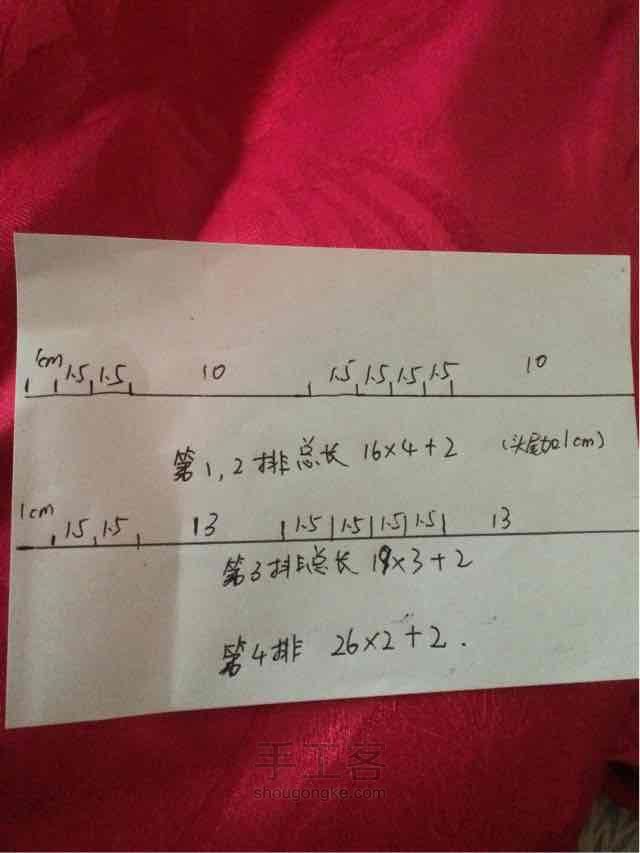 1cm 1.5 1.5 10 1.5 1.5 1.5 1.5 10
第1,2排总长 16×4+2 (头尾加1cm)
1cm 1.5 1.5 13 1.5 1.5 1.5 1.5 13
第3排总长 19×3+2
第4排 26×2+2.
手工客
shougongke.com